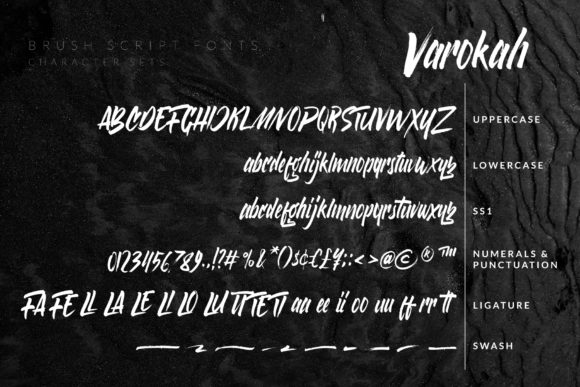 BRUSH SCRIPT FONTS
CHARACTER SETS
Varokah
ABCDEFGHIJKLMNOPQRSTUVWXYZ
UPPERCASE
abcdefghijklmnopqrstuvwxyz
LOWERCASE
abcdefghijklmnopqrstuvwxyz
SS1
0123456789..!?#%&*()$¢£€¥;:<>@©®™
NUMERALS &
PUNCTUATION
FA FE LI LA LE LI LO LU TT TE TI aa ee ii oo uu ff rr tt
LIGATURE
SWASH